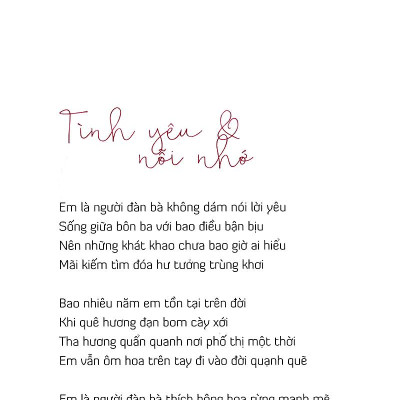 Tình yêu &
nỗi nhớ
Em là người đàn bà không dám nói lời yêu
Sống giữa bôn ba với bao điều bận bịu
Nên những khát khao chưa bao giờ ai hiểu
Mãi kiếm tìm đóa hư tưởng trùng khơi
Bao nhiêu năm em tồn tại trên đời
Khi quê hương đạn bom cày xới
Tha hương quẩn quanh nơi phố thị một thời
Em vẫn ôm hoa trên tay đi vào đời quạnh quẽ
Em là người đàn bà thích bông hoa rừng mạnh mẽ